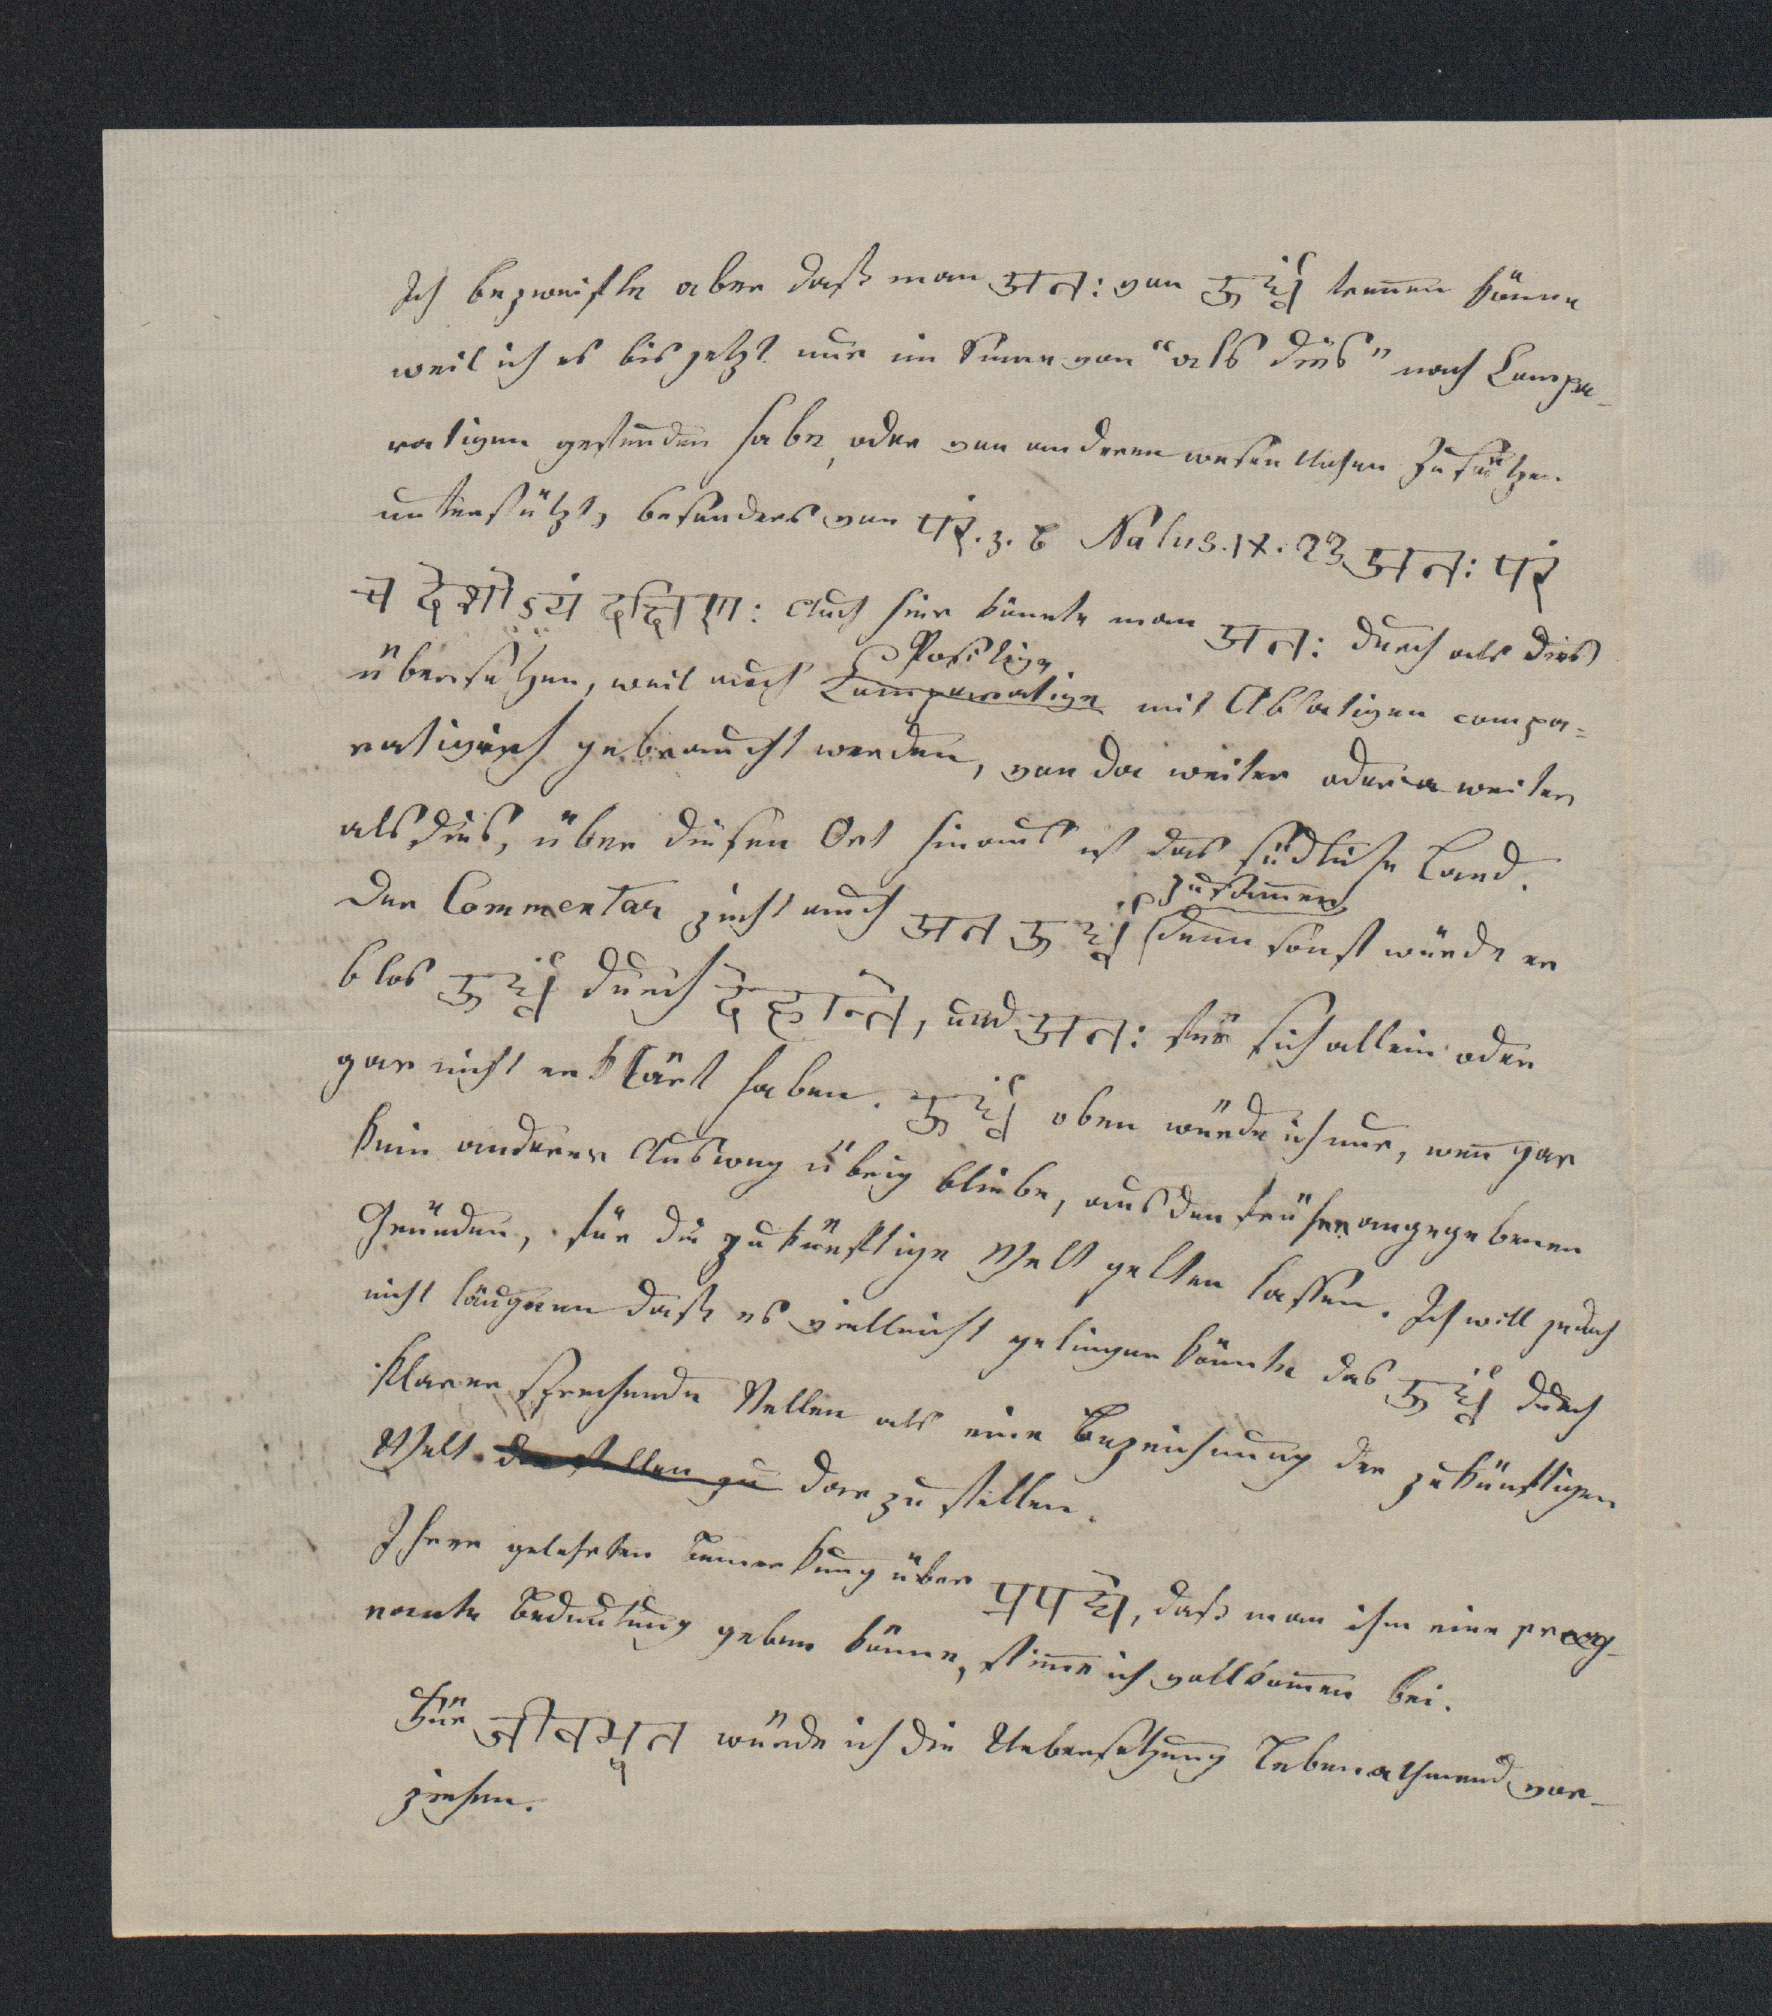 Ich bezweifle aber daß man अतः von ऊर्द्ध्वं trennen könne
weil ich es bis jetzt nur im Sinne von “als dies” nach Compa-
rativen gefunden habe, oder von anderen wesentlichen Zusätzen
unterstützt, besonders von परं. z. B Nalus. IX. 23 अतः परं
च देशोऽयं दक्षिणाः Auch hier könnte man अतः durch als dies
Positive
übersetzen, weil auch Comparative mit Ablativen compa-
rativisch gebraucht werden, von da weiter oder weiter
als dies, über diesen Ort hinaus ist das südliche Land.
zusammen
Der Commentar zieht auch अत ऊर्द्ध्वं denn sonst würde er
blos ऊर्द्ध्वं durch देहान्ते, und अतः für sich allein oder
gar nicht erklärt haben. ऊर्द्ध्वं oben würde ich nur, wen̄ gar
kein anderer Ausweg übrig bliebe, aus den früher angegebenen
Gründen, für die zukünftige Welt gelten lassen. Ich will jedoch
nicht läugnen daß es vielleicht gelingen könnte das ऊर्द्ध्वं durch
klarer sprechende Stellen als eine Bezeichnung der zukünftigen
Welt darstellen zu darzustellen.
Ihrer gelehrten Bemerkung über प्रपद्ये, daß man ihm eine präg-
nante Bedeutung geben könne, stim̄e ich vollkom̄en bei.
Für जीवभूत würde ich die Uebersetzung Lebenathmend vor-
ziehen.